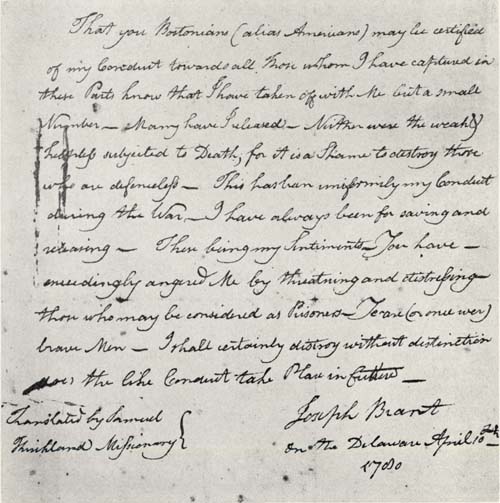 That you Bostonians (alias Americans) may be certified
of my Conduct towards all those whom I have captured in
these Parts know that I have taken off with Me but a small
Number — Many have I released — Neither were the weak &
helpless subjected to Death, for it is a Shame to destroy those
who are defenceless — This has been uniformly my Conduct
during the War — I have always been for saving and
releasing — These being my Sentiments — You have —
exceedingly angered Me by threatning and distressing
those who may be considered as Prisoners — Ye are (or once were)
brave Men — I shall certainly destroy without distinction
does the like Conduct take Place in future —
Translated by Samuel
Kirkland Missionary
Joseph Brant
On the Delaware April 10th
1780